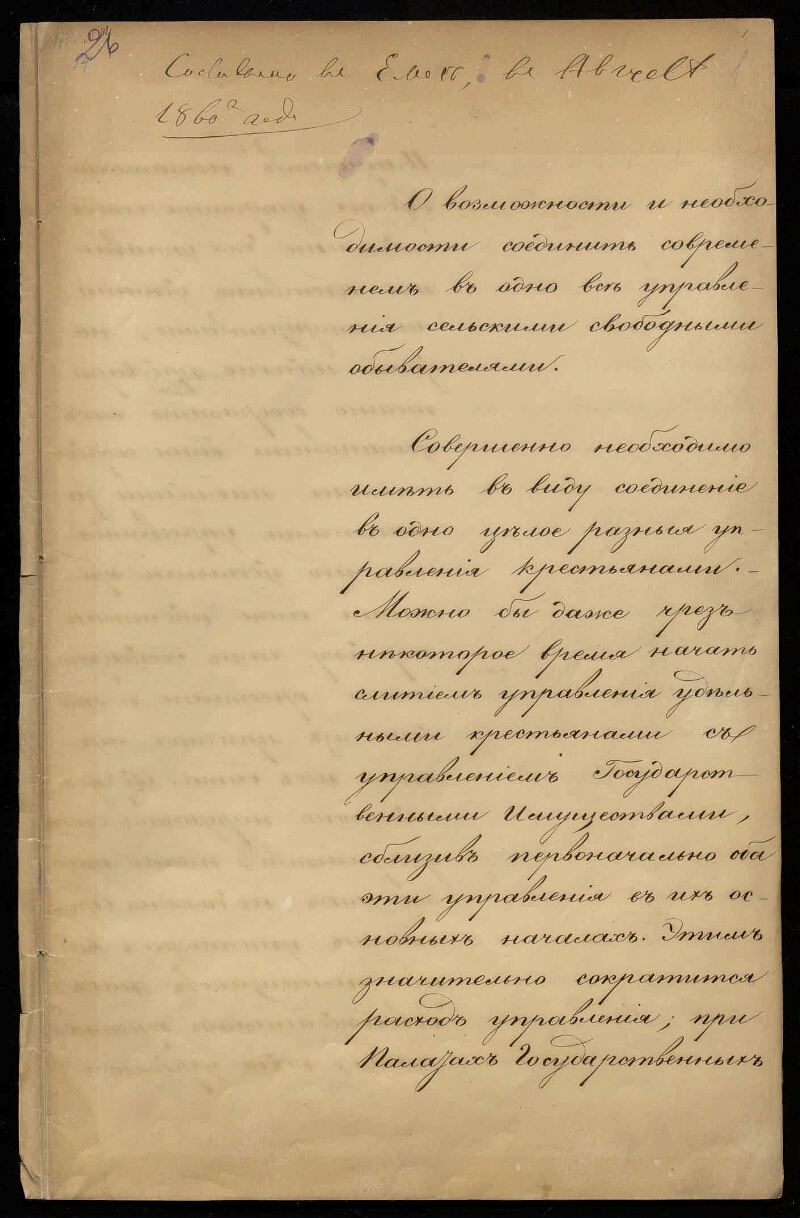 26
Составлено въ Емсѣ, въ Августѣ
1860го года
О возможности и необхо-
димости соединить совреме-
немъ въ одно всѣ управле-
нія сельскими свободными
обывателями.
Совершенно необходимо
имѣть въ виду соединеніе
въ одно цѣлое разныя уп-
равленія крестьянами. –
Можно бы даже чрезъ
нѣкоторое время начать
слитіемъ управленія удѣль-
ными крестьянами съ
управленіемъ Государст-
венными Имуществами,
сблизивъ первоначально оба
эти управленія въ ихъ ос-
новныхъ началахъ. Этимъ
значительно сократится
расходъ управленія; при
Палатахъ Государственныхъ